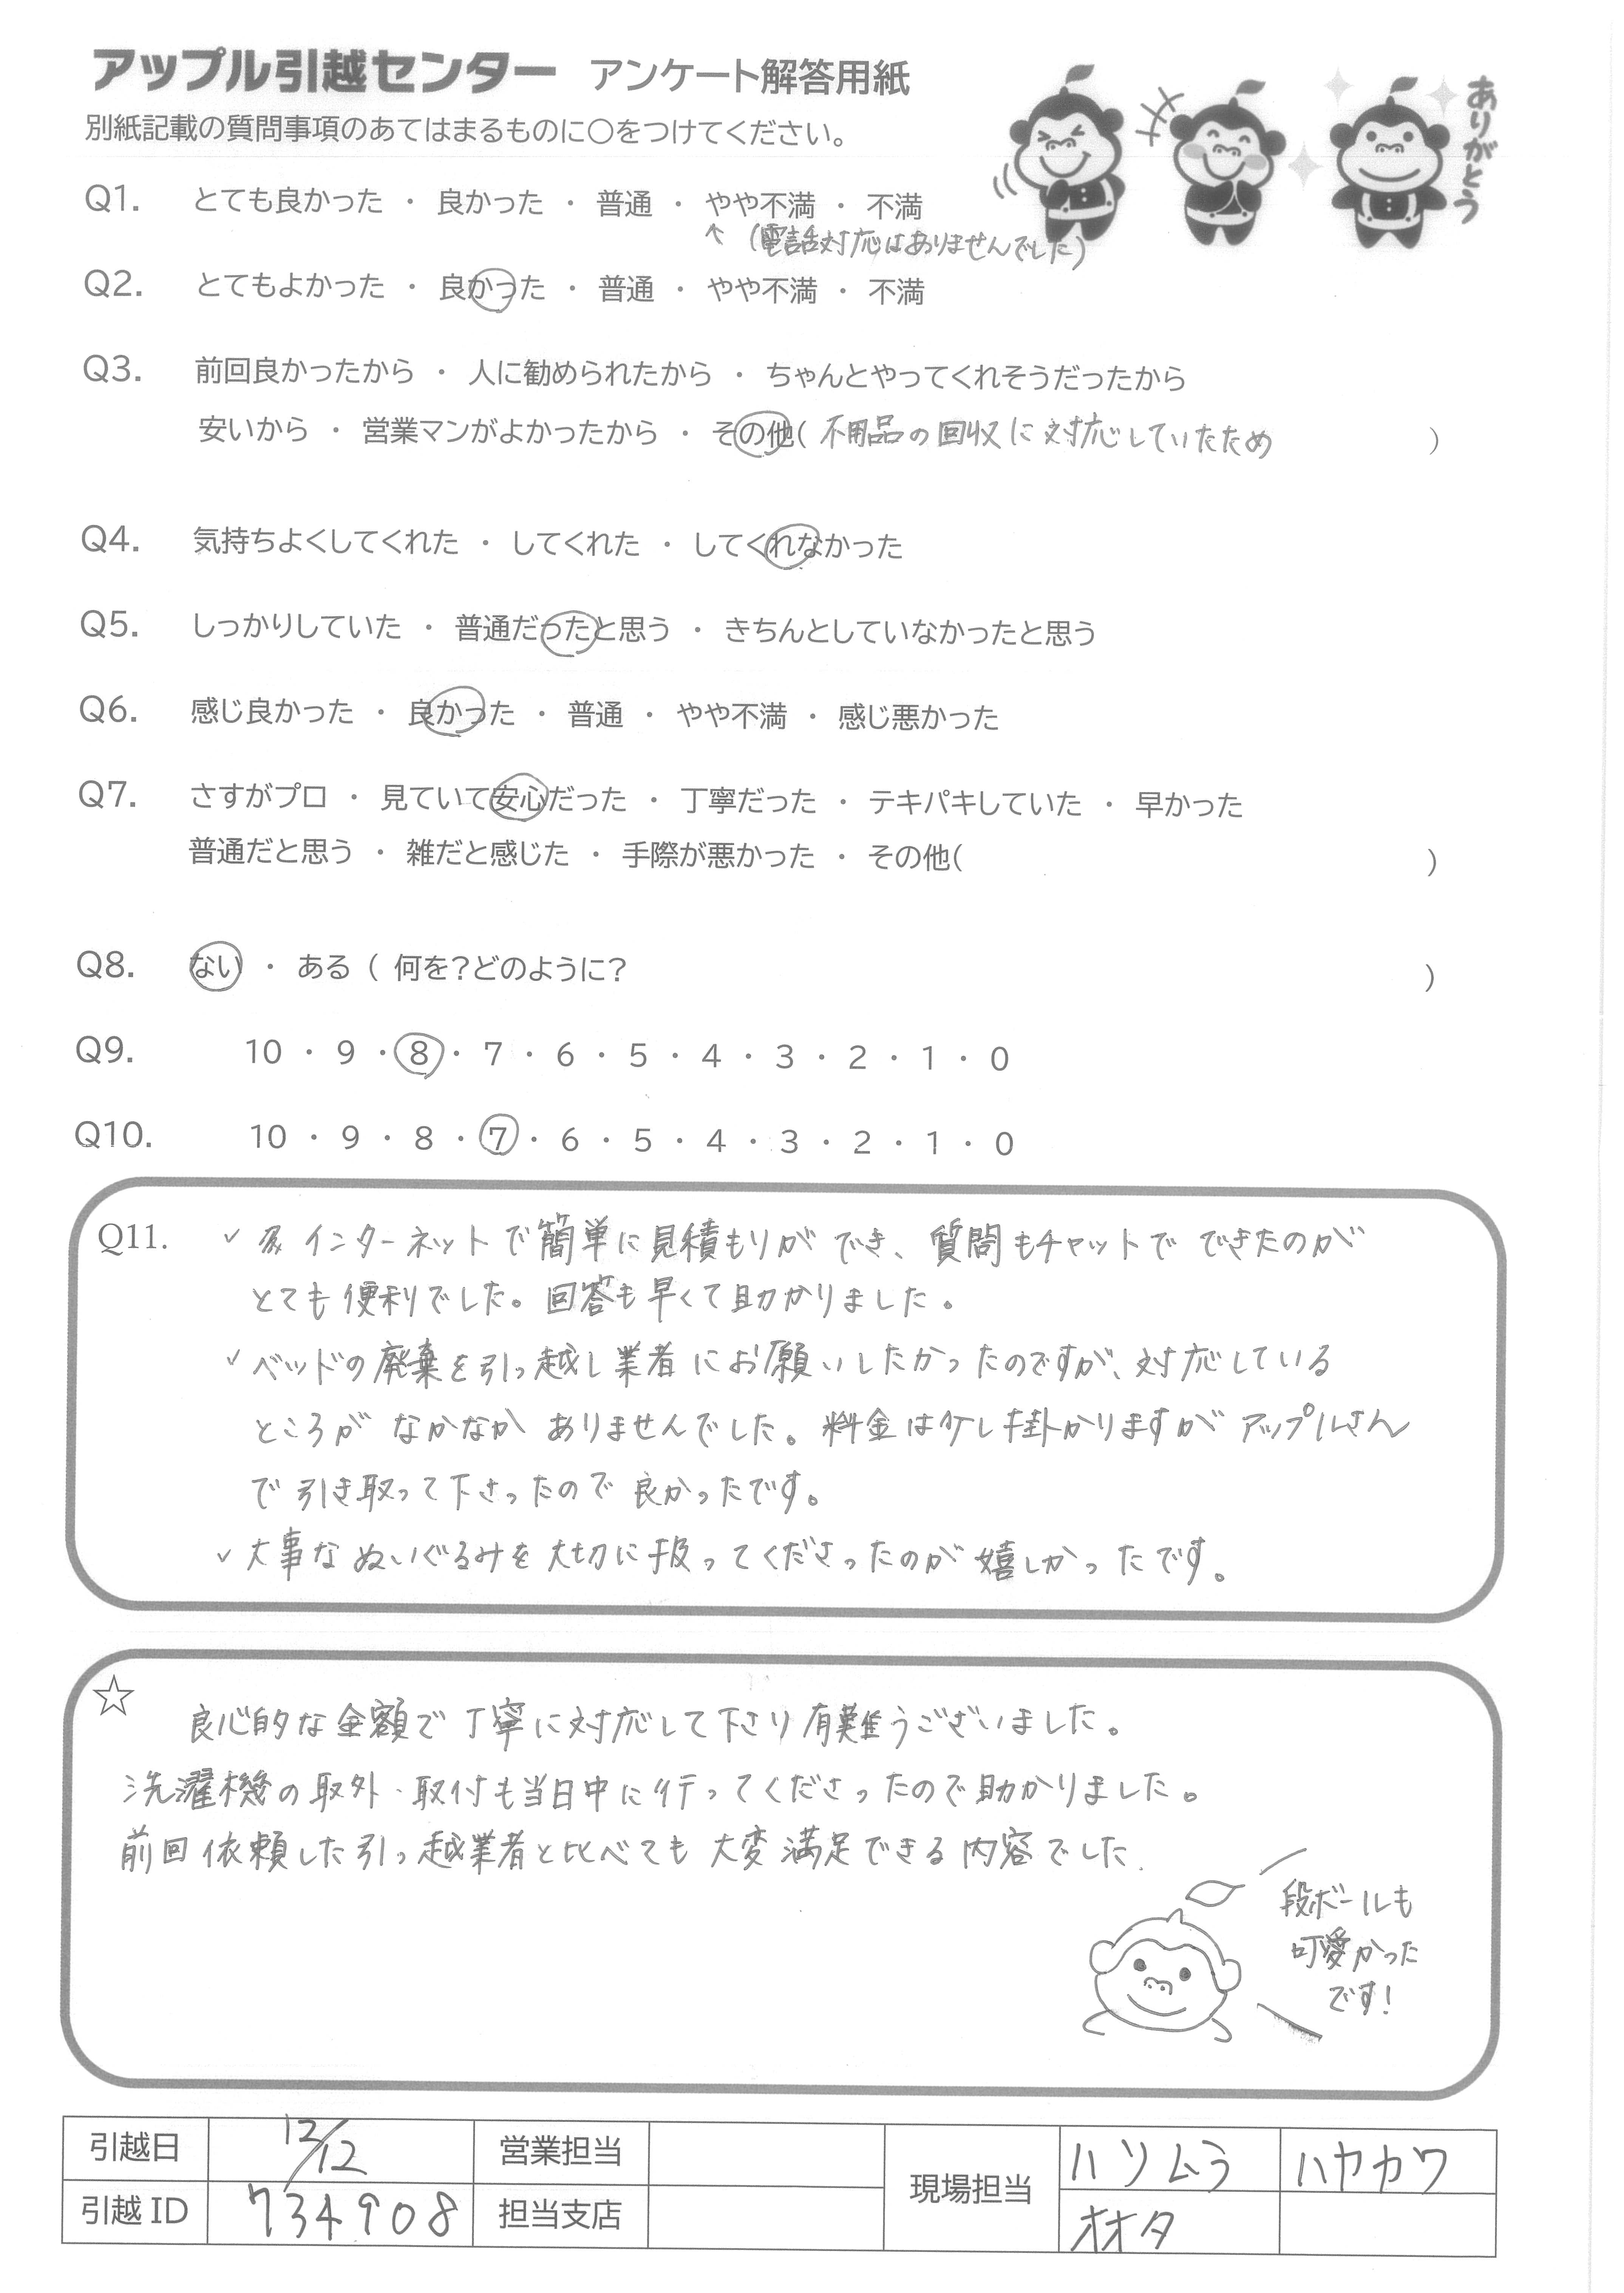 アップル引越センター アンケート解答用紙
ありがとう
別紙記載の質問事項のあてはまるものに○をつけてください。
Q1. とても良かった ・ 良かった ・ 普通 ・ やや不満 ・ 不満
↑ (電話対応はありませんでした)
Q2. とてもよかった ・ 良かった ・ 普通 ・ やや不満 ・ 不満
Q3. 前回良かったから ・ 人に勧められたから ・ ちゃんとやってくれそうだったから
安いから ・ 営業マンがよかったから ・ その他( 不用品の回収に対応していたため )
Q4. 気持ちよくしてくれた ・ してくれた ・ してくれなかった
Q5. しっかりしていた ・ 普通だったと思う ・ きちんとしていなかったと思う
Q6. 感じ良かった ・ 良かった ・ 普通 ・ やや不満 ・ 感じ悪かった
Q7. さすがプロ ・ 見ていて安心だった ・ 丁寧だった ・ テキパキしていた ・ 早かった
普通だと思う ・ 雑だと感じた ・ 手際が悪かった ・ その他( )
Q8. ない ・ ある ( 何を?どのように? )
Q9. 10 ・ 9 ・ 8 ・ 7 ・ 6 ・ 5 ・ 4 ・ 3 ・ 2 ・ 1 ・ 0
Q10. 10 ・ 9 ・ 8 ・ 7 ・ 6 ・ 5 ・ 4 ・ 3 ・ 2 ・ 1 ・ 0
Q11. ✓ インターネットで簡単に見積もりができ、質問もチャットでできたのが
とても便利でした。回答も早くて助かりました。
✓ ベッドの廃棄を引っ越し業者にお願いしたかったのですが、対応している
ところがなかなかありませんでした。料金は少し掛かりますがアップルさん
で引き取って下さったので良かったです。
✓ 大事なぬいぐるみを大切に扱ってくださったのが嬉しかったです。
☆ 良心的な金額で丁寧に対応して下さり有難うございました。
洗濯機の取外・取付も当日中に行ってくださったので助かりました。
前回依頼した引っ越業者と比べても大変満足できる内容でした.
段ボールも
可愛かった
です!
引越日 12/12 営業担当 現場担当 ハソムラ ハヤカワ
引越ID 734908 担当支店 オオタ